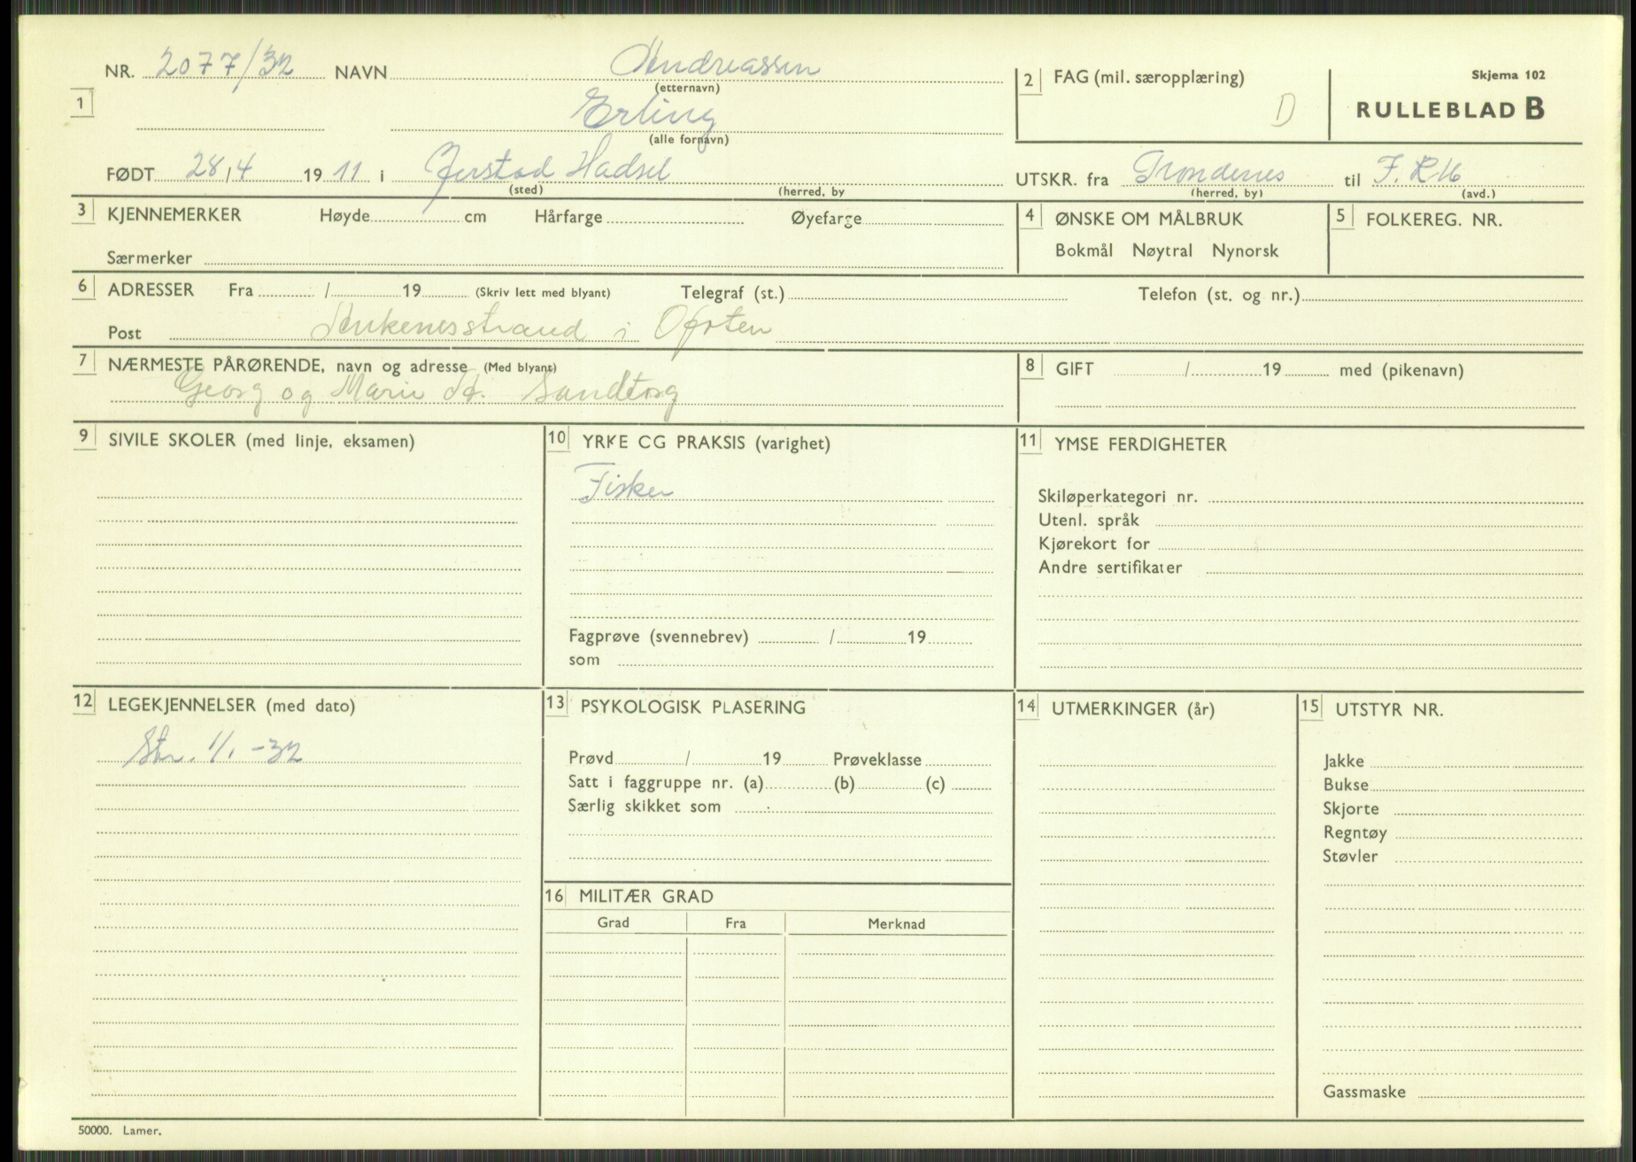 NR. 2077/32 NAVN Andreassen
(etternavn)
Skjema 102
2 FAG (mil. særopplæring)
D
RULLEBLAD B
1
Erling
(alle fornavn)
FØDT 28/4 1911 i Hadsel
(sted) (herred, by
UTSKR. fra Trondenes til F. R 16
(herred, by) (avd.)
3 KJENNEMERKER Høyde cm Hårfarge Øyefarge
Særmerker
4 ØNSKE OM MÅLBRUK
Bokmål Nøytral Nynorsk
5 FOLKEREG. NR.
6 ADRESSER Fra / 19 (Skriv lett med blyant) Telegraf (st.) Telefon (st. og nr.)
Post Ankenesstrand i Ofoten
7 NÆRMESTE PÅRØRENDE, navn og adresse (Med blyant)
Georg og Marie A. Sandtorg
8 GIFT / 19 med (pikenavn)
9 SIVILE SKOLER (med linje, eksamen)
10 YRKE CG PRAKSIS (varighet)
Fisker
Fagprøve (svennebrev) / 19
som
11 YMSE FERDIGHETER
Skiløperkategori nr.
Utenl. språk
Kjørekort for
Andre sertifikater
12 LEGEKJENNELSER (med dato)
Str. 1/1 -32
13 PSYKOLOGISK PLASERING
Prøvd / 19 Prøveklasse
Satt i faggruppe nr. (a) (b) (c)
Særlig skikket som
14 UTMERKINGER (år)
15 UTSTYR NR.
Jakke
Bukse
Skjorte
Regntøy
Støvler
Gassmaske
16 MILITÆR GRAD
Grad Fra Merknad
50000. Lamer.